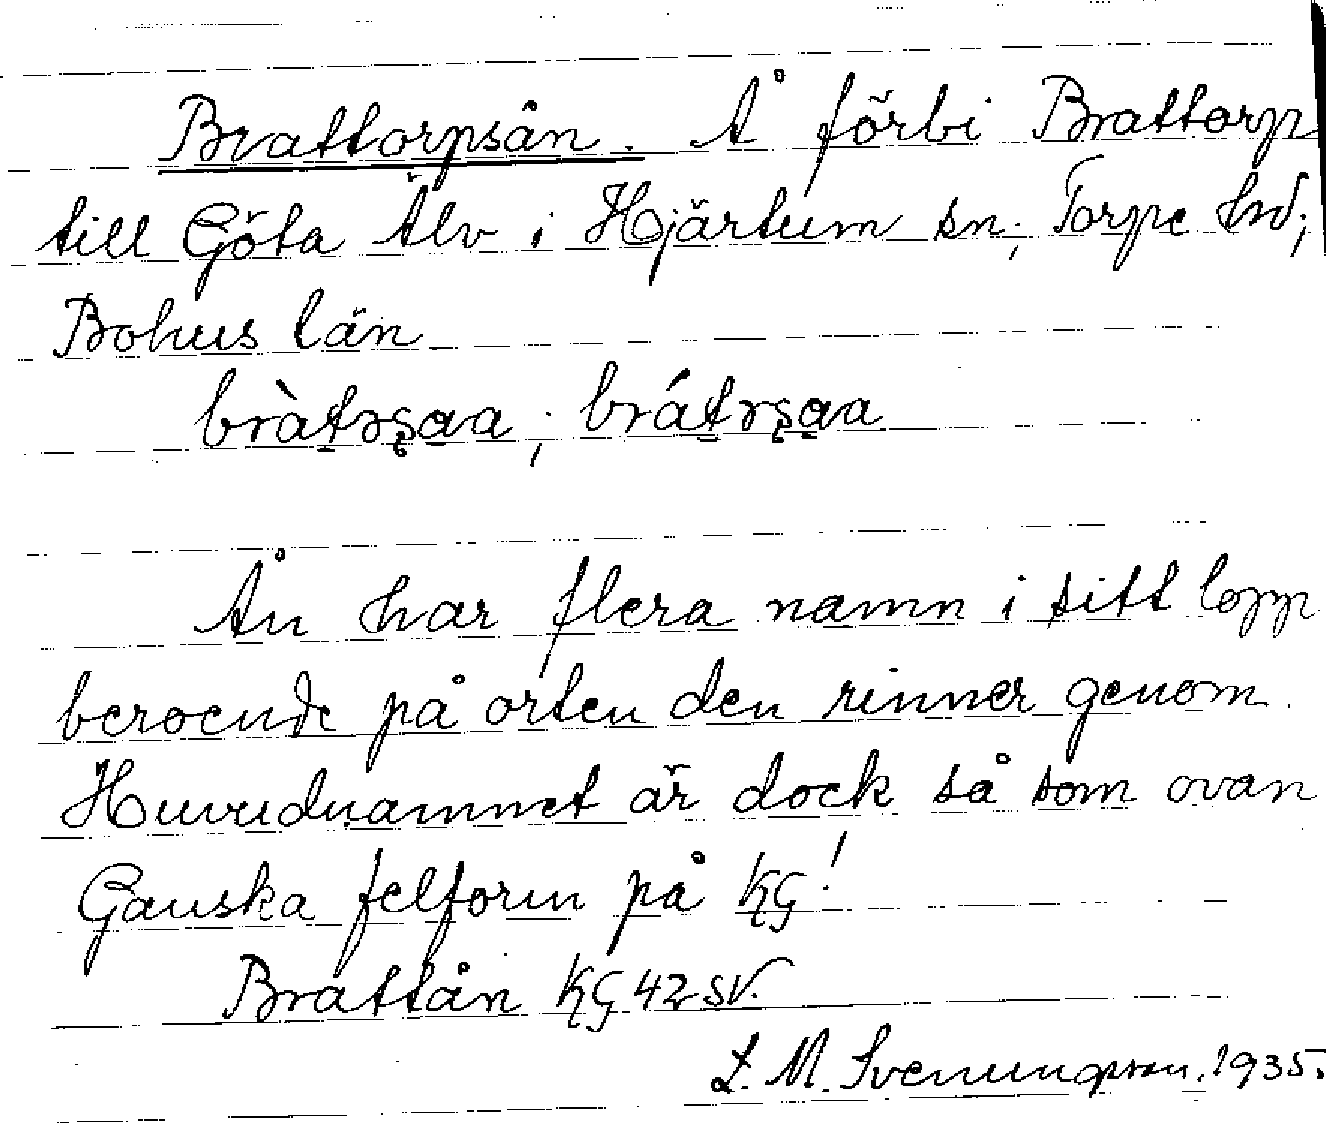 Brattorpsån. Å förbi Brattorp
till Göta Älv i Hjärtum sn; Torpe hd;
Bohus län
bràtrsaa; brátrsaa
Ån har flera namn i sitt lopp
beroende på orten den rinner genom.
Huvudnamnet är dock så som ovan
Ganska felform på KG!
Brattån KG 42 SV.
L. M. Svenungsson. 1935.